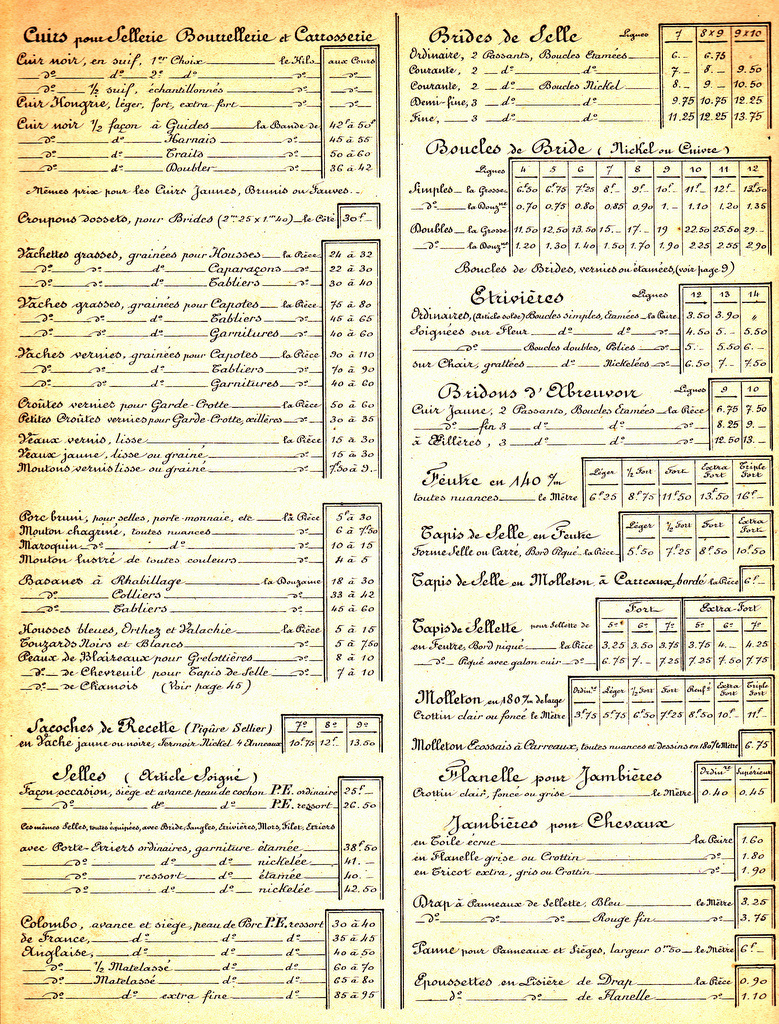 Cuirs pour Sellerie Bourrellerie et Carrosserie
Cuir noir, en suif, 1er Choix le Kilo aux Cours
dº dº 2e dº dº
dº ½ suif, échantillonnés dº
Cuir Hongrie, léger, fort, extra fort dº
Cuir noir ½ façon à Guides la Bande de 42f à 50f
dº dº Harnais dº 45 à 55
dº dº Traits dº 50 à 60
dº dº Doubler dº 36 à 42
Mêmes prix pour les Cuirs Jaunes, Brunis ou Fauves.
Croupons dossets, pour Brides (2m25 x 1m40) le Côté 30f.-
Vachettes grasses, grainées pour Housses la Pièce 24 à 32
dº dº dº Caparaçons dº 22 à 30
dº dº dº Tabliers dº 30 à 40
Vaches grasses, grainées pour Capotes la Pièce 75 à 80
dº dº dº Tabliers dº 45 à 65
dº dº dº Garnitures dº 40 à 60
Vaches vernies, grainées pour Capotes la Pièce 90 à 110
dº dº dº Tabliers dº 70 à 90
dº dº dº Garnitures dº 40 à 60
Croûtes vernies pour Garde-Crotte la Pièce 50 à 60
Petites Croûtes vernies pour Garde-Crotte, œillères dº 30 à 35
Veaux vernis, lisse la Pièce 15 à 30
Veaux jaune, lisse ou grainé dº 15 à 30
Moutons vernis lisse ou grainé dº 7f50 à 9.-
Porc bruni, pour selles, porte-monnaie, etc la Pièce 5f à 30
Mouton chagriné, toutes nuances dº 6 à 7f50
Maroquin dº dº dº 10 à 15
Mouton lustré de toutes couleurs dº 4 à 5
Basanes à Rhabillage la Douzaine 18 à 30
dº Colliers dº 33 à 42
dº Tabliers dº 45 à 60
Housses bleues, Orthez et Valachie la Pièce 5 à 15
Touzards Noirs et Blancs dº 5 à 7.50
Peaux de Blaireaux pour Grelottières dº 8 à 10
dº de Chevreuil pour Tapis de Selle dº 7 à 10
dº de Chamois (Voir page 45)
Sacoches de Recette (Piqûre Sellier) 7e 8e 9e
en Vache jaune ou noire, Fermoir Nickel 4 Anneaux 10f75 12f.- 13.50
Selles (Article Soigné)
Façon occasion, siège et avance peau de cochon P.E. ordinaire 25f.-
dº dº dº P.E. ressort 26.50
Les mêmes Selles, toutes équipées, avec Bride, Sangles, Etrivières, Mors, Filet, Etriers
avec Porte-Etriers ordinaires, garniture étamée 38f50
dº dº dº nickelée 41.-
dº ressort dº étamée 40.-
dº dº dº nickelée 42.50
Colombo, avance et siège, peau de Porc P.E. ressort 30 à 40
de France, dº dº dº 35 à 45
Anglaise, dº dº dº 40 à 50
dº ½ Matelassé dº dº 60 à 70
dº Matelassé dº dº 65 à 80
dº dº extra fine dº 85 à 95
Brides de Selle Lignes 7 8x9 9x10
Ordinaire, 2 Passants, Boucles Etamées 6.- 6.75
Courante, 2 dº dº 7.- 8.- 9.50
Courante, 2 dº Boucles Nickel 8.- 9.- 10.50
Demi-fine, 3 dº dº 9.75 10.75 12.25
Fine, 3 dº dº 11.25 12.25 13.75
Boucles de Bride (Nickel ou Cuivre)
Lignes 4 5 6 7 8 9 10 11 12
Simples la Grosse 6f50 6f75 7f25 8f- 9f- 10f- 11f- 12f- 13f50
dº la Douzne 0.70 0.75 0.80 0.85 0.90 1.- 1.10 1.20 1.35
Doubles la Grosse 11.50 12.50 13.50 15.- 17.- 19 22.50 25.50 29.-
dº la Douzne 1.20 1.30 1.40 1.50 1.70 1.90 2.25 2.55 2.90
Boucles de Brides, vernies ou étamées, (voir page 9)
Etrivières Lignes 12 13 14
Ordinaires, (Article solde) Boucles simples, Etamées la Paire 3.50 3.90 "
Soignées sur Fleur dº dº dº 4.50 5.- 5.50
dº Boucles doubles, Polies dº 5.- 5.50 6.-
sur Chair, grattées dº Nickelées dº 6.50 7.- 7.50
Bridons d'Abreuvoir Lignes 9 10
Cuir Jaune, 2 Passants, Boucles Etamées la Pièce 6.75 7.50
dº fin 3 dº dº dº 8.25 9.-
à Œillères, 3 dº dº dº 12.50 13.-
Feutre en 140 c/m Léger ½ Fort Fort Extra Fort Triple Fort
toutes nuances le Mètre 6f25 8f75 11f50 13f50 16f-
Tapis de Selle en Feutre Léger ½ Fort Fort Extra Fort
Forme Selle ou Carré, Bord Piqué la Pièce 5f50 7f25 8f50 10f50
Tapis de Selle en Molleton, à Carreaux, bordé la Pièce 6f-
Tapis de Sellette pour Sellette de Fort Extra-Fort
5e 6e 7e 5e 6e 7e
en Feutre, Bord piqué la Pièce 3.25 3.50 3.75 3.75 4.- 4.25
dº Piqué avec galon cuir dº 6.75 7.- 7.25 7.25 7.50 7.75
Molleton en 180 c/m de large Ordinre Léger ½ Fort Fort Renfé Extra Fort Triple Fort
Crottin clair ou foncé le Mètre 3f75 5f75 6f50 7f25 8f50 10f- 11f-
Molleton Ecossais à Carreaux, toutes nuances et dessins en 180 c/m le Mètre 6.75
Flanelle pour Jambières Ordinre Supérieure
Crottin clair, foncé ou grise le Mètre 0.40 0.45
Jambières pour Chevaux
en Toile écrue la Paire 1.60
en Flanelle grise ou Crottin dº 1.80
en Tricot extra, gris ou Crottin dº 1.90
Drap à Panneaux de Sellette, Bleu le Mètre 3.25
dº dº dº Rouge fin dº 3.75
Panne pour Panneaux et Sièges, largeur 0m50 le Mètre 6f-
Epoussettes en Lisière de Drap la Pièce 0.90
dº dº de Flanelle dº 1.10